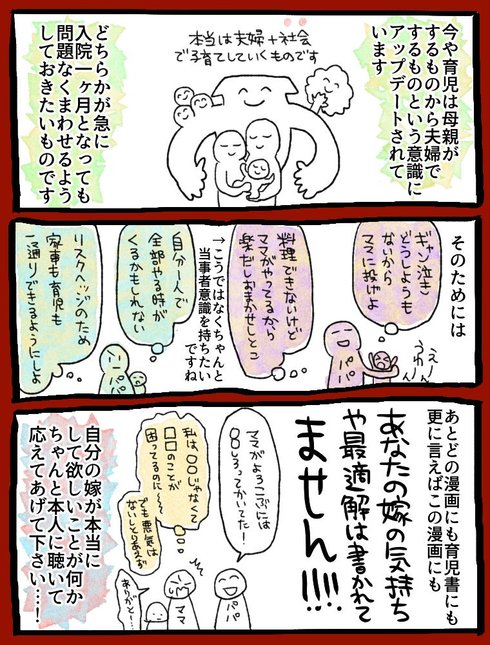 今や育児は母親が
するものから夫婦で
するものという意識に
アップデートされて
います
本当は夫婦+社会
で子育てしていくものです
どちらかが急に
入院一ヶ月となっても
問題なくまわせるよう
しておきたいものです
そのためには
ギャン泣き
どうしようも
ないから
ママに投げよ
うえーん
うわーん
料理できないけど
ママがやってるから
楽だしおまかせしとこ
パパ
→こうではなくちゃんと
当事者意識を持ちたい
ですね
自分一人で
全部やる時が
くるかもしれない
リスクヘッジのため
家事も育児も
一通りできるようにしよ
パパ
あとどの漫画にも育児書にも
更に言えばこの漫画にも
あなたの嫁の気持ち
や最適解は書かれて
ません!!!!
ママがよろこぶには
〇〇しろってかいてた!
パパ
私は〇〇じゃなくて
□□のことが
困ってるのに〜〜
でも悪気は
ないしとりあえず
ありがと…
ママ
自分の嫁が本当に
して欲しいことが何か
ちゃんと本人に聴いて
応えてあげて下さい…!